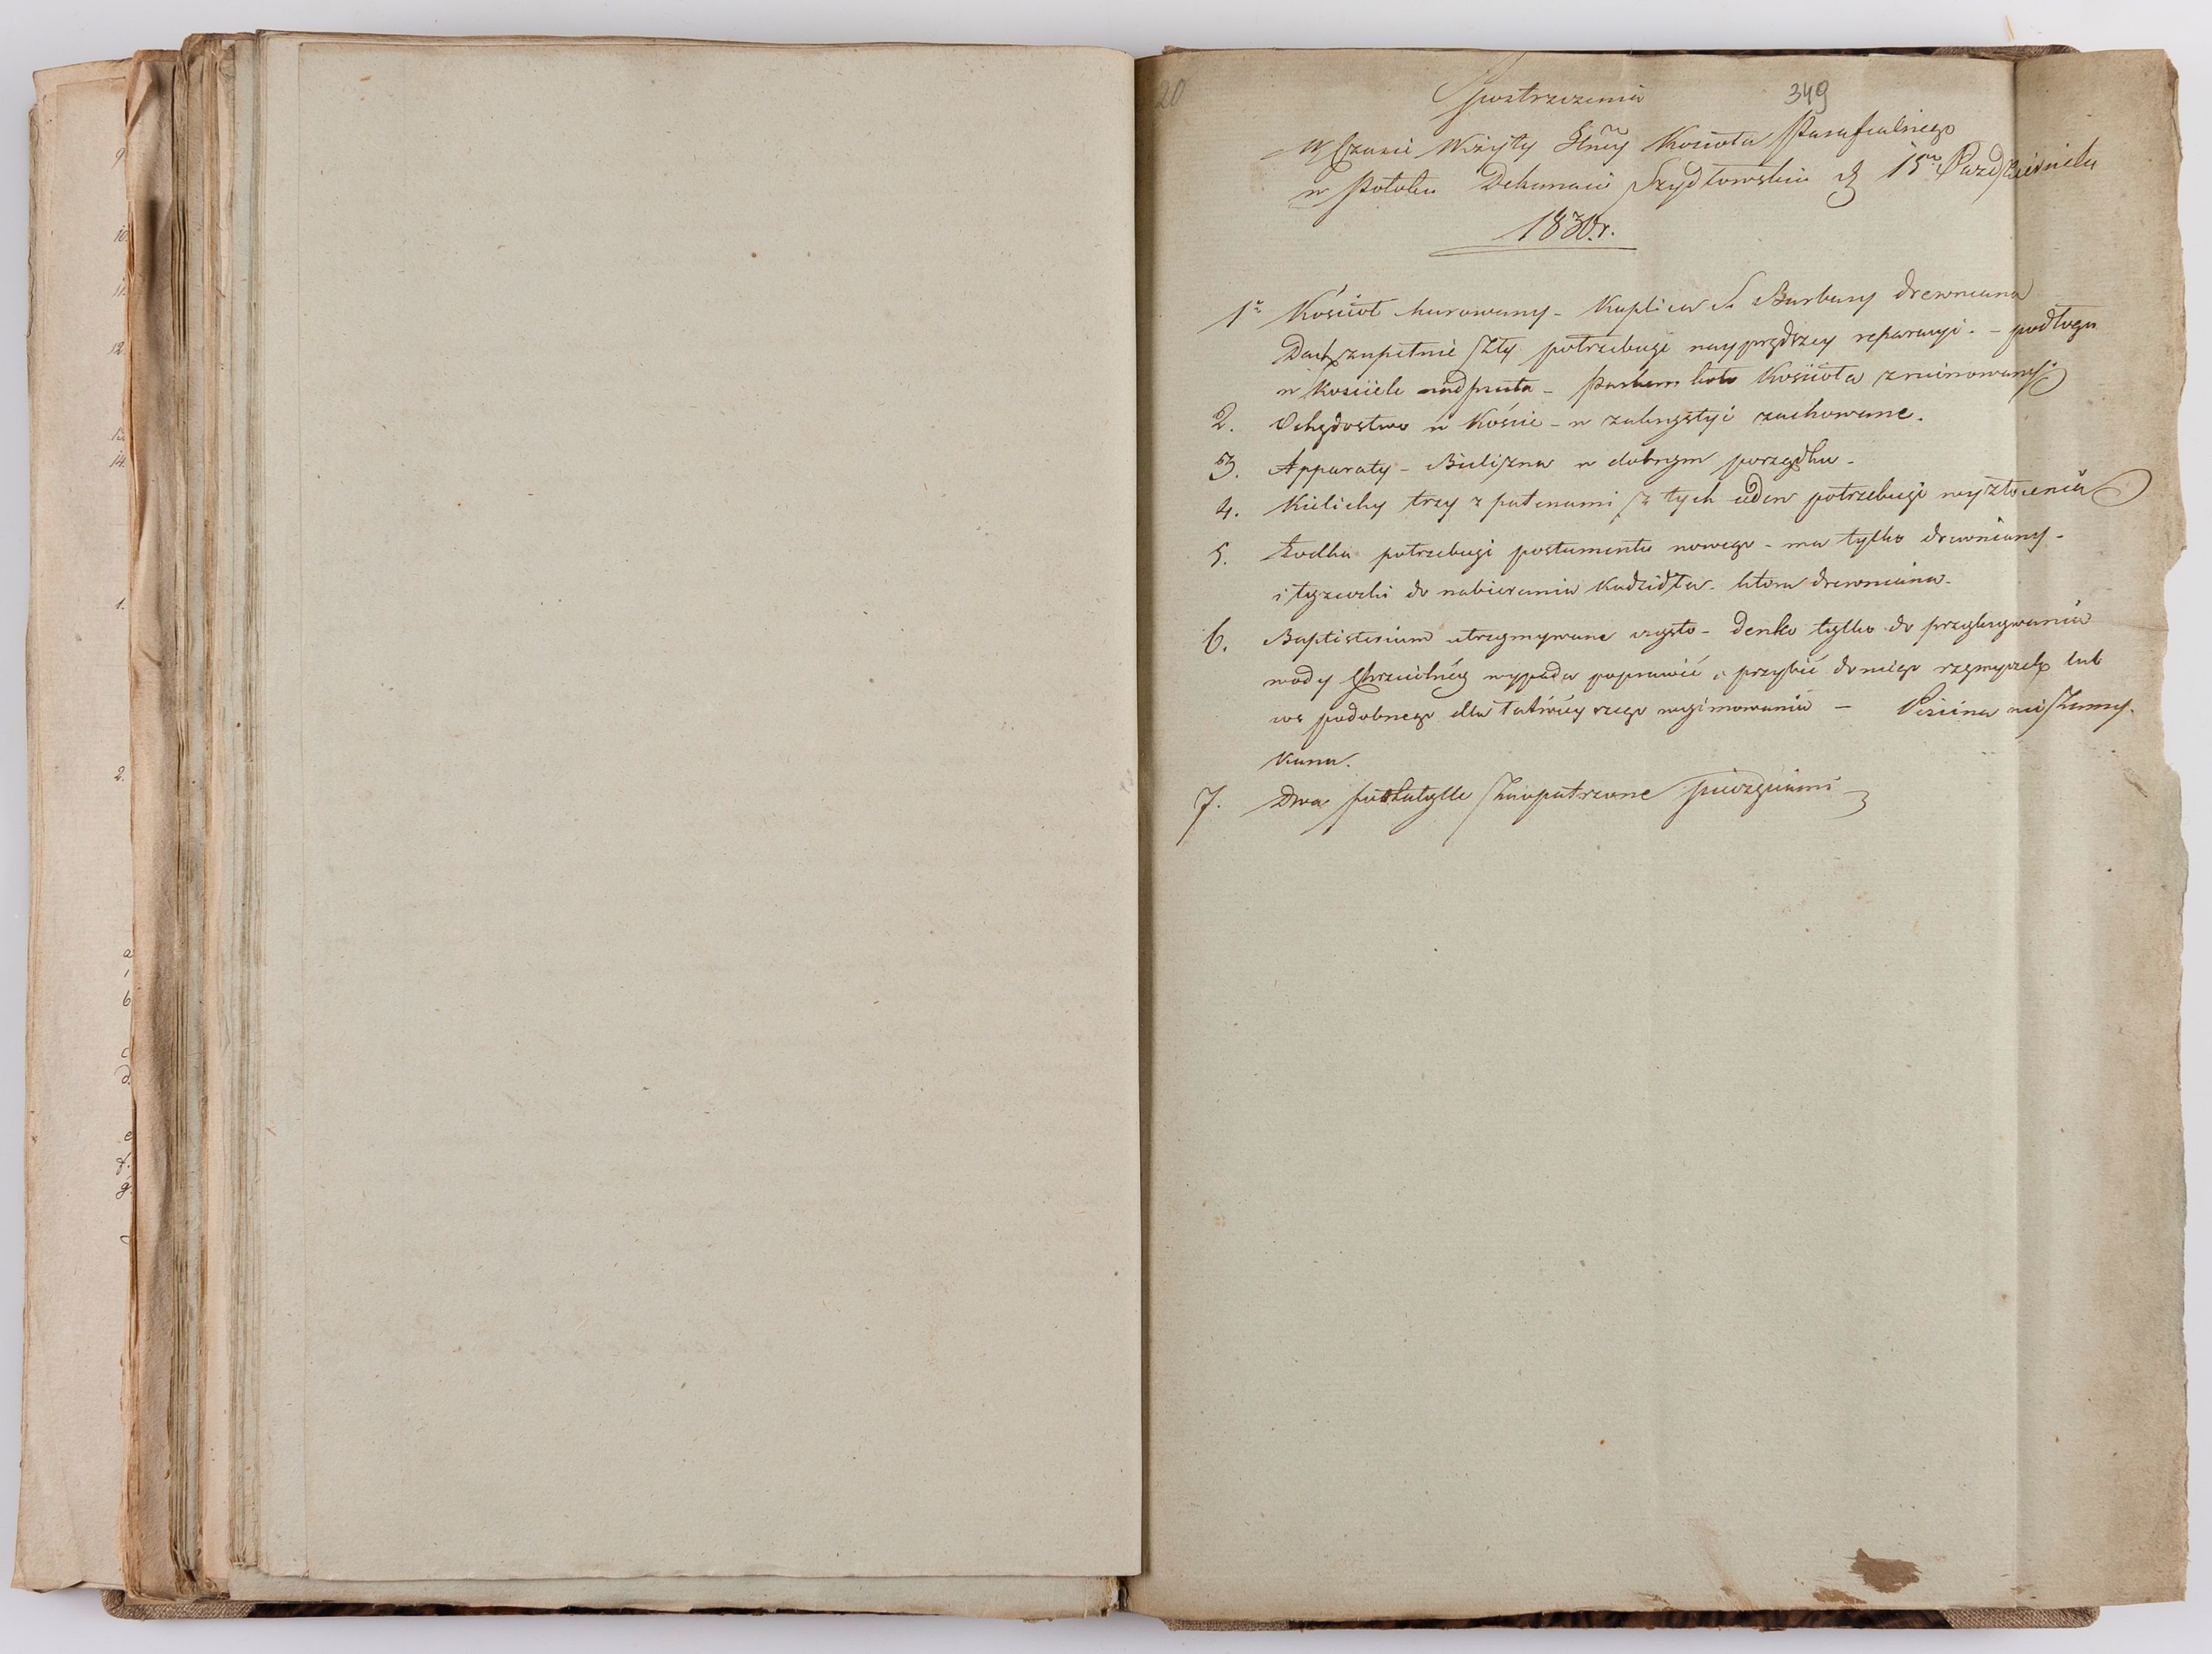 20
349
Spostrzeżenia
w Czasie Wizyty Głney Kościoła Parafialnego
w Potoku Dekanacie Szydłowskim d. 15 Października
1830 r.
1° Kościół murowany - Kaplica S. Barbary drewniana
Dach zupełnie zły potrzebuje nayprędszey reparacyi. - podłoga
w Kościele nadpsuta - Parkan koło Kościoła zruinowany.
2. Ochędostwo w Kośćie - w zakrystyi zachowane.
3. Apparaty - Bielizna w dobrym porządku.
4. Kielichy trzy z patenami z tych jeden potrzebuje wyzłocenia
5. Łodka potrzebuje postumentu nowego - ma tylko drewniany -
i łyżeczki do nabierania Kadzidła - która drewniana.
6. Baptisterium utrzymywane czysto - denko tylko do przykrywania
wody Chrzcielnéy wypada poprawić, i przybić do niego rzemyczek lub
co podobnego dla łatwieyszego wyjmowania - Piscina nie zamy-
kana.
7. Dwa portatylle zaopatrzone pieczęciami
9
10.
11.
12.
13.
14.
1.
2.
a
b
c
d.
e
f.
g.